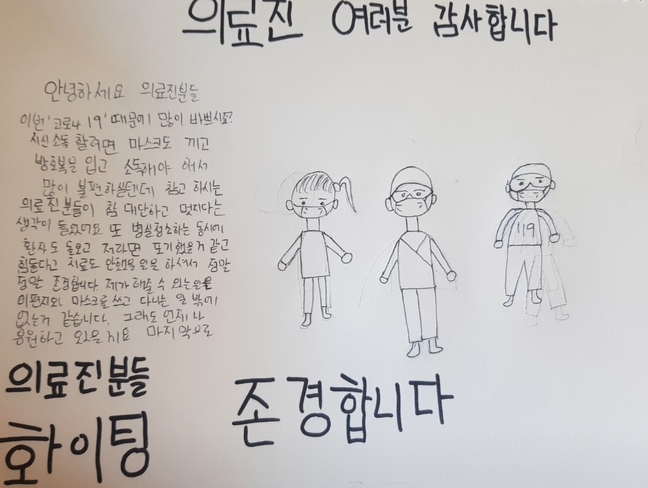 의료진 여러분 감사합니다
안녕하세요 의료진분들
이번 '코로나 19' 때문에 많이 바쁘시죠?
소독 할려면 마스크도 끼고
방호복을 입고 소독해야 해서
많이 불편하실텐데 참고 하시는
의료진분들이 참 대단하고 멋지다는
생각이 들었어요 또 병실청소하는 동시에
환자도 돌보고 저라면 포기했을거 같고
힘들다고 치료도 안했을 하셔서 정말
정말 존경합니다 제가 해줄 수 있는
이 편지와 마스크를 쓰고 다니는 일 밖에
없는거 같습니다. 그래도 언제나
응원하고 마지막으로
의료진분들
화이팅
존경합니다
119